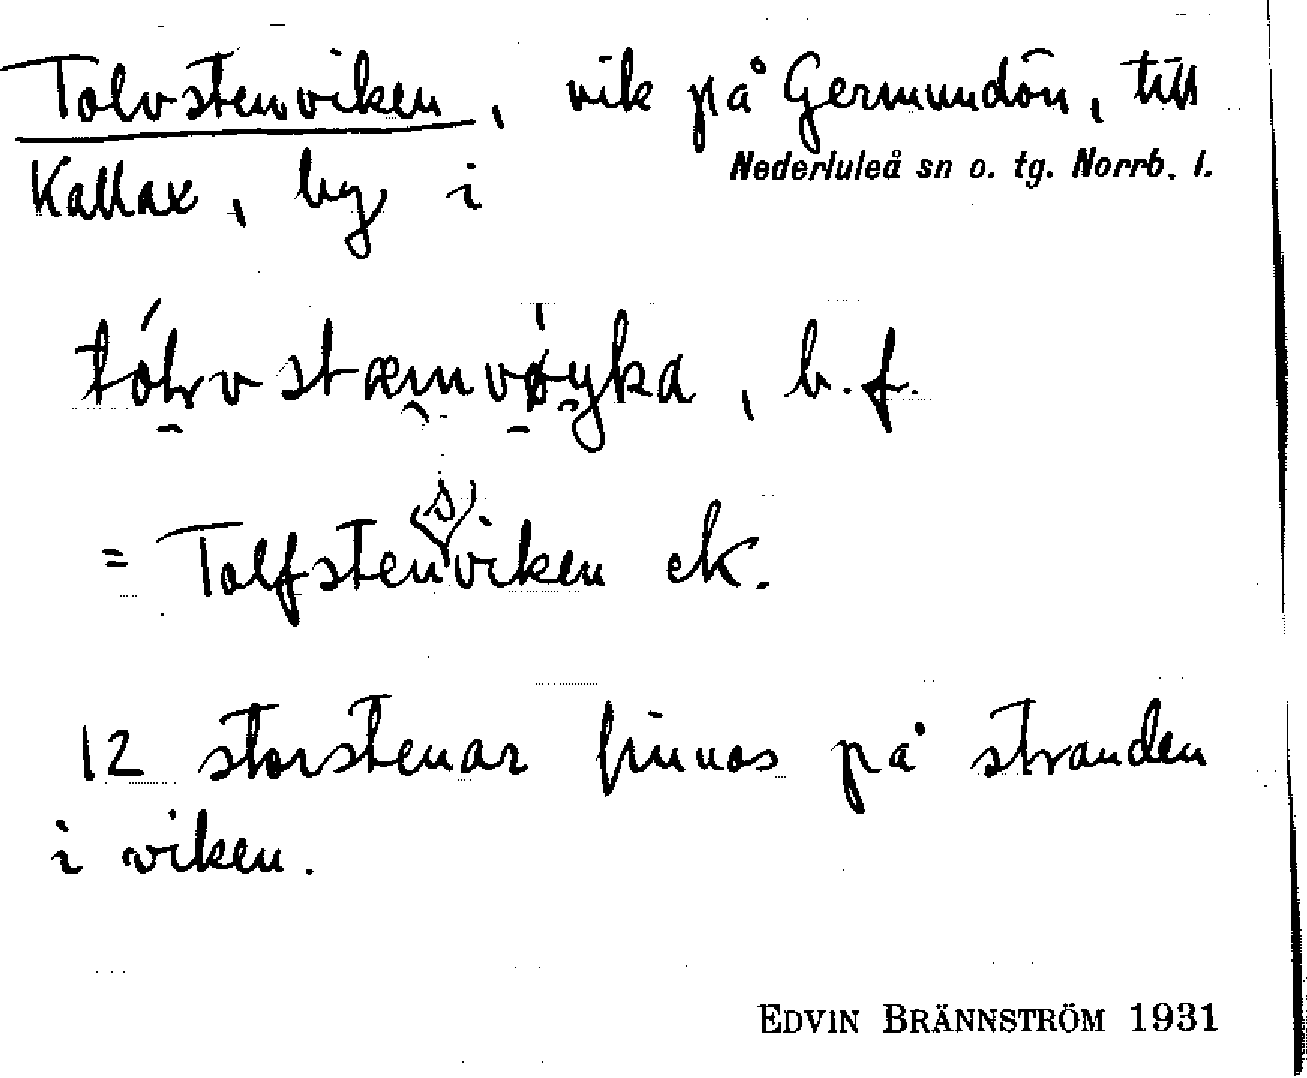 Tolvstenviken, vik på Germundön, till
Nederluleå sn o. tg. Norrb. l.
Kallax, by i
b. f.
= Tolfsten(s)viken ek.
12 storstenar finnas på stranden
i viken.
EDVIN BRÄNNSTRÖM 1931